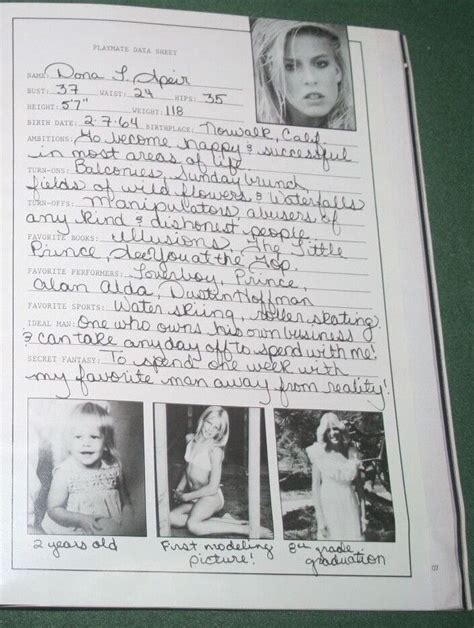 PLAYMATE DATA SHEET
NAME: Dona L. Speir
BUST: 37 WAIST: 24 HIPS: 35
HEIGHT: 5'7" WEIGHT: 118
BIRTH DATE: 2-7-64 BIRTHPLACE: Norwalk, Calif.
AMBITIONS: To become happy & successful
in most areas of life.
TURN-ONS: Balconies, Sunday brunch
fields of wild flowers & waterfalls
TURN-OFFS: Manipulators, abusers of
any kind & dishonest people.
FAVORITE BOOKS: Illusions, The Little
Prince, See You at the Top.
FAVORITE PERFORMERS: Loverboy, Prince,
Alan Alda, Dustin Hoffman
FAVORITE SPORTS: Water skiing, roller skating
IDEAL MAN: One who owns his own business
& can take any day off to spend with me!
SECRET FANTASY: To spend one week with
my favorite man away from reality!
2 years old
First modeling
picture!
8th grade
graduation